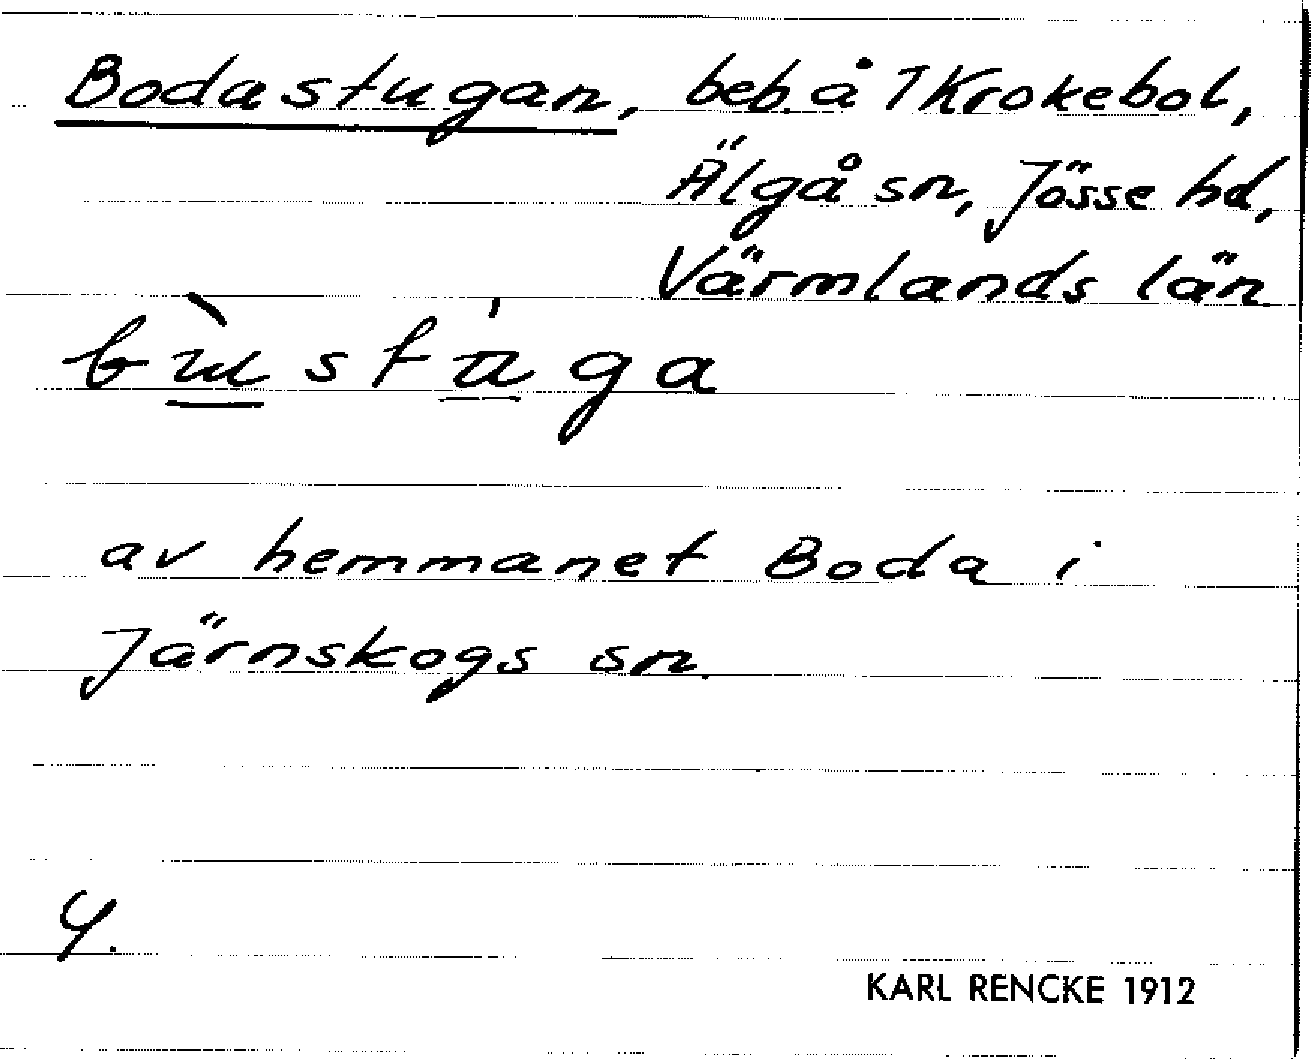 Bodastugan, beb. å 1 Krokebol,
Älgå sn, Jösse hd,
Värmlands län
av hemmanet Boda i
Järnskogs sn.
4.
KARL RENCKE 1912